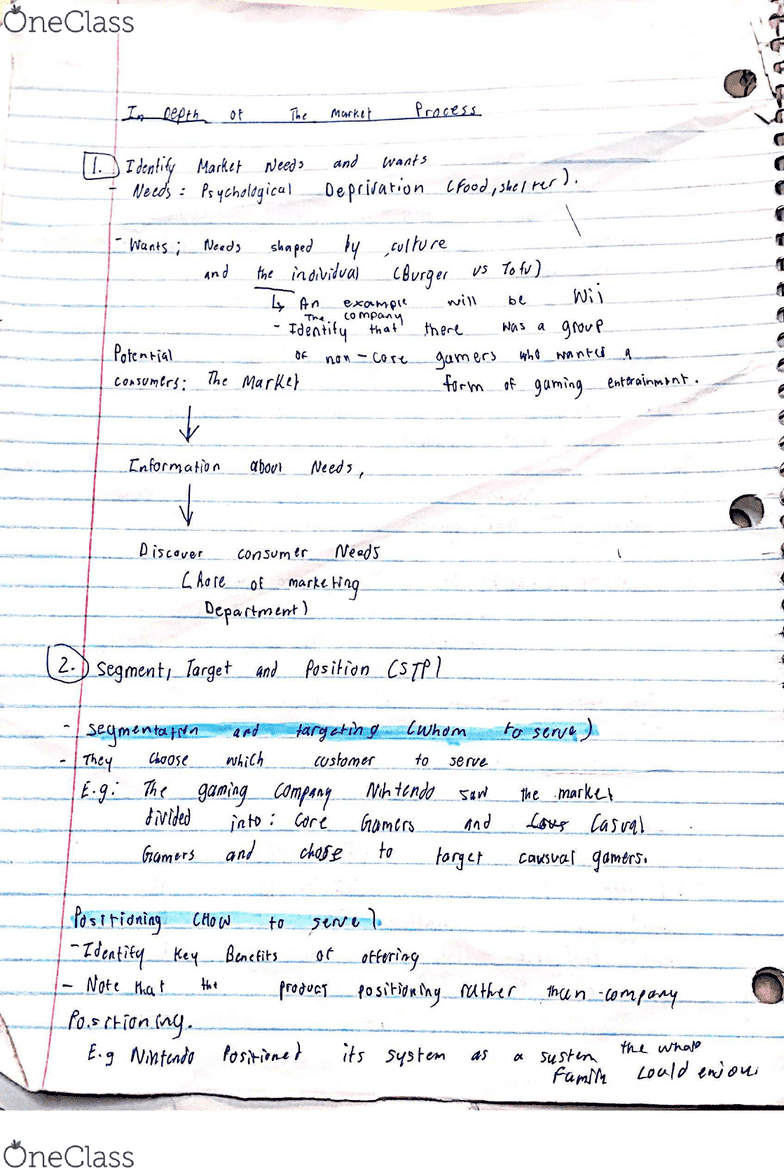 OneClass
In Depth of The Market Process
1. Identify Market Needs and Wants
- Needs: Psychological Deprivation (Food, shelter).
- Wants; Needs shaped by culture
and the individual (Burger vs Tofu)
↳ An example will be Wii
The company
- Identify that there was a group
Potential of non-core gamers who wanted a
consumers: The Market form of gaming enterainment.
↓
Information about Needs,
↓
Discover consumer Needs
( of marketing
Department)
2. Segment, Target and Position (STP)
- Segmentation and targeting (whom to serve)
- They choose which customer to serve
E.g: The gaming company Nintendo saw the market
divided into: Core Gamers and Casual
Gamers and chose to target causual gamers.
Positioning (How to serve)
- Identify Key Benefits of offering
- Note that the product positioning rather than company
Positioning.
E.g Nintendo Positioned its system as a system the whole
Family could enjoy
OneClass